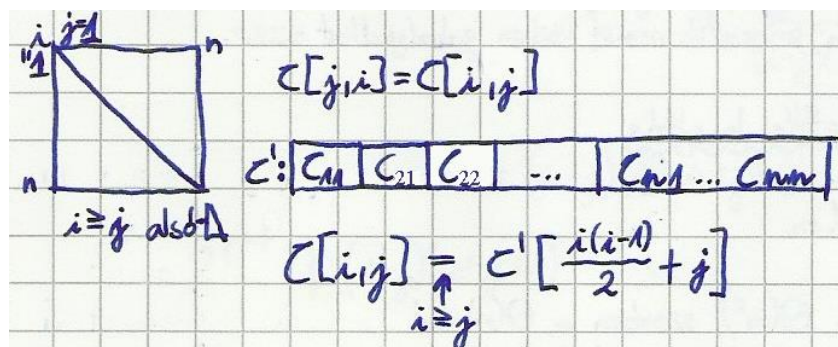 i j=1 n
"1
C[j,i]=C[i,j]
C': C₁₁ C₂₁ C₂₂ ... Cₙ₁ ... Cₙₙ
n
i≥j alsó-Δ
C[i,j] = C'[i(i-1)/2 + j]
↑
i≥j